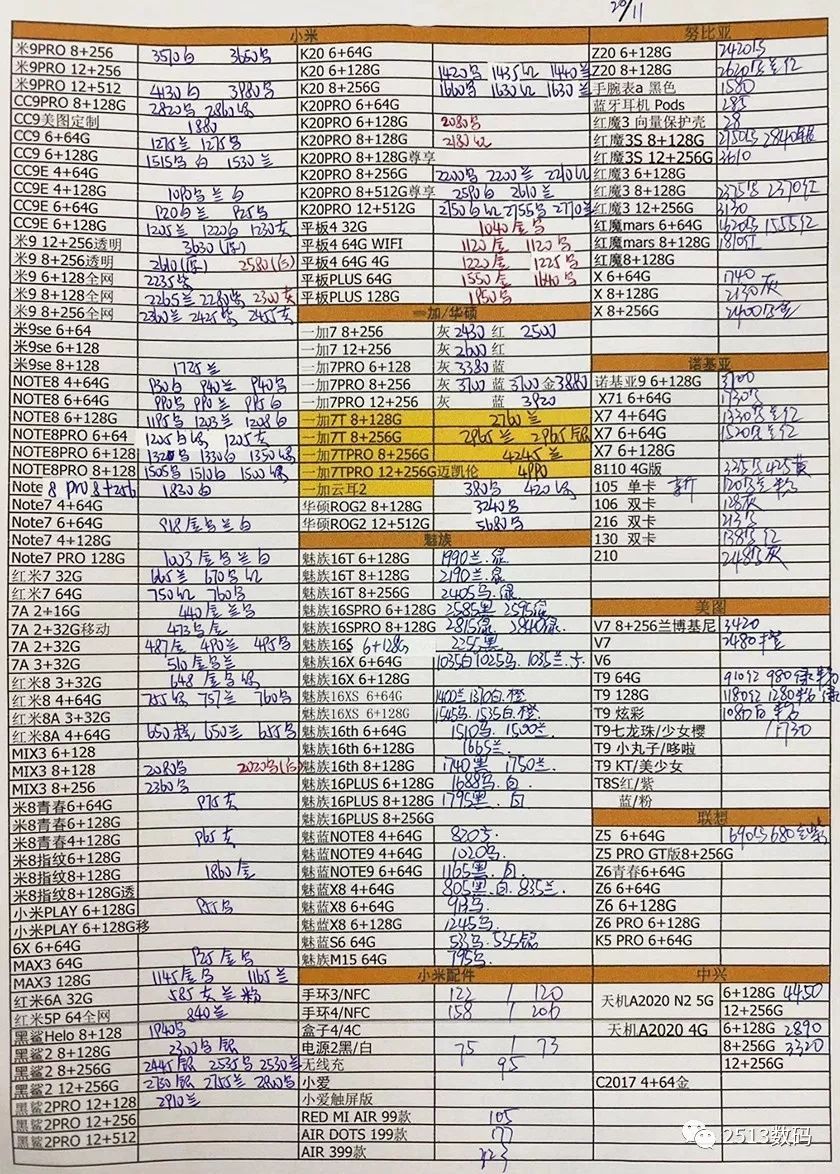 20/11
小米
米9PRO 8+256 3570白 3650乌
米9PRO 12+256
米9PRO 12+512 4130白 3980乌
CC9PRO 8+128G 2820乌 2860绿
CC9美图定制 1880
CC9 6+64G 1275兰 1275乌
CC9 6+128G 1515乌白 1530兰
CC9E 4+64G
CC9E 4+128G 1090乌兰白
CC9E 6+64G 920白兰 925乌
CC9E 6+128G 1205兰 1220白 1230灰
米9 12+256透明 3030
米9 8+256透明 2610 2580
米9 6+128全网 2235乌
米9 8+128全网 2265兰 2280乌 2300灰
米9 8+256全网 2360兰 2425乌 2455灰
米9se 6+64
米9se 6+128
米9se 8+128 1725兰
NOTE8 4+64G 930白 940兰 940乌
NOTE8 6+64G 990乌 990兰 995白
NOTE8 6+128G 1195乌 1203兰 1208白
NOTE8PRO 6+64 1225白绿 1225灰
NOTE8PRO 6+128 1320乌 1330白 1350绿
NOTE8PRO 8+128 1505乌 1510白 1500绿
Note 8 pro 8+256 1830白
Note7 4+64G
Note7 6+64G 918金乌兰白
Note7 4+128G
Note7 PRO 128G 1003金乌兰白
红米7 32G 665兰 670乌红
红米7 64G 750红 760乌
7A 2+16G 440金兰乌
7A 2+32G移动 473乌金
7A 2+32G 487金 490兰 495乌
7A 3+32G 510金乌兰
红米8 3+32G 648金乌绿
红米8 4+64G 755绿 757兰 760乌
红米8A 3+32G
红米8A 4+64G 650兰 655乌
MIX3 6+128
MIX3 8+128 2080乌 2020乌
MIX3 8+256 2360乌
米8青春6+64G 975灰
米8青春6+128G
米8青春4+128G 965灰
米8指纹6+128G
米8指纹8+128G 1860金
米8指纹8+128G透
小米PLAY 6+128G 855乌
小米PLAY 6+128G移
6X 6+64G
MAX3 64G 925金乌
MAX3 128G 1145金乌 1165兰
红米6A 32G 585灰兰粉
红米5P 64全网 840兰
黑鲨Helo 8+128 1940乌
黑鲨2 8+128G 2300乌银
黑鲨2 8+256G 2445银 2535乌 2530兰
黑鲨2 12+256G 2730银 2755兰 2800乌
黑鲨2PRO 12+128 2910兰
黑鲨2PRO 12+256
黑鲨2PRO 12+512
K20 6+64G
K20 6+128G 1420乌 1435红 1440兰
K20 8+128G 1600乌 1630红 1630兰
K20PRO 6+64G
K20PRO 6+128G 2080乌
K20PRO 8+128G 2180红
K20PRO 8+128G尊享
K20PRO 8+256G 2200乌 2200兰 2210红
K20PRO 8+512G尊享 2590白 2610兰
K20PRO 12+512G 2750白红 2755乌 2770兰
平板4 32G 1040金乌
平板4 64G WIFI 1120金 1120乌
平板4 64G 4G 1220金 1225乌
平板PLUS 64G 1550金 1640乌
平板PLUS 128G 1950乌
一加/华硕
一加7 8+256 灰 2430 红 2500
一加7 12+256 灰 2600 红
一加7PRO 6+128 灰 3380 蓝
一加7PRO 8+256 灰 3700 蓝 3700 金 3880
一加7PRO 12+256 灰 蓝 3920
一加7T 8+128G 2760兰
一加7T 8+256G 2965兰 2965银
一加7TPRO 8+256G 4245兰
一加7TPRO 12+256G迈凯伦 4990
一加云耳2 380乌 420绿
华硕ROG2 8+128G 3240乌
华硕ROG2 12+512G 5680乌
魅族
魅族16T 6+128G 1990兰.绿
魅族16T 8+128G 2190兰.
魅族16T 8+256G 2405乌.绿
魅族16SPRO 6+128G 2585黑 2595绿
魅族16SPRO 8+128G 2815绿 2840绿.
魅族16S 6+128G 2255黑
魅族16X 6+64G 1035白1025乌.1035兰.
魅族16X 6+128G
魅族16XS 6+64G 1400兰 1310白.橙
魅族16XS 6+128G 1545乌.1535白.橙.
魅族16th 6+64G 1510乌.1500兰.
魅族16th 6+128G 1665兰.
魅族16th 8+128G 1740黑 1750兰.
魅族16PLUS 6+128G 1688乌.白.
魅族16PLUS 8+128G 1795黑.白
魅族16PLUS 8+256G
魅蓝NOTE8 4+64G 820
魅蓝NOTE9 4+64G 1020乌.
魅蓝NOTE9 6+64G 1165黑.白
魅蓝X8 4+64G 805黑.白.835兰.
魅蓝X8 6+64G 913乌.
魅蓝X8 6+128G 1245乌.
魅蓝S6 64G 533乌.535银
魅族M15 64G 795乌.
小米配件
手环3/NFC 122 / 120
手环4/NFC 158 / 206
盒子4/4C
电源2黑/白 75 / 73
无线充 95
小爱
小爱触屏版
RED MI AIR 99款 105
AIR DOTS 199款 177
AIR 399款
努比亚
Z20 6+128G 2420乌
Z20 8+128G 2620乌兰红
手腕表a 黑色 1580
蓝牙耳机 Pods 285
红魔3 向量保护壳 28
红魔3S 8+128G 2750乌 2840
红魔3S 12+256G 3610
红魔3 6+128G
红魔3 8+128G 2375乌 2370红
红魔3 12+256G 3130
红魔mars 6+64G 1555红
红魔mars 8+128G 1810红
红魔8+128G
X 6+64G 1740
X 8+128G 2130灰
X 8+256G 2400
诺基亚
诺基亚9 6+128G 3100
X71 6+64G 1730乌
X7 4+64G 1330乌兰红
X7 6+64G 1520乌兰红
X7 6+128G
8110 4G版 335乌 425黄
105 单卡 新
106 双卡 128灰
216 双卡 213乌
130 双卡 138乌红
210 248乌灰
美图
V7 8+256兰博基尼 3420
V7 2480
V6
T9 64G 910红 980绿
T9 128G 1180红 1280
T9 炫彩 1080白
T9七龙珠/少女樱 1730
T9 小丸子/哆啦
T9 KT/美少女
T8S红/紫
蓝/粉
联想
Z5 6+64G 690乌 680
Z5 PRO GT版8+256G
Z6青春6+64G
Z6 6+64G
Z6 6+128G
Z6 PRO 6+128G
K5 PRO 6+64G
中兴
天机A2020 N2 5G 6+128G 4450
12+256G
天机A2020 4G 6+128G 2890
8+256G 3320
12+256G
C2017 4+64金
2513数码